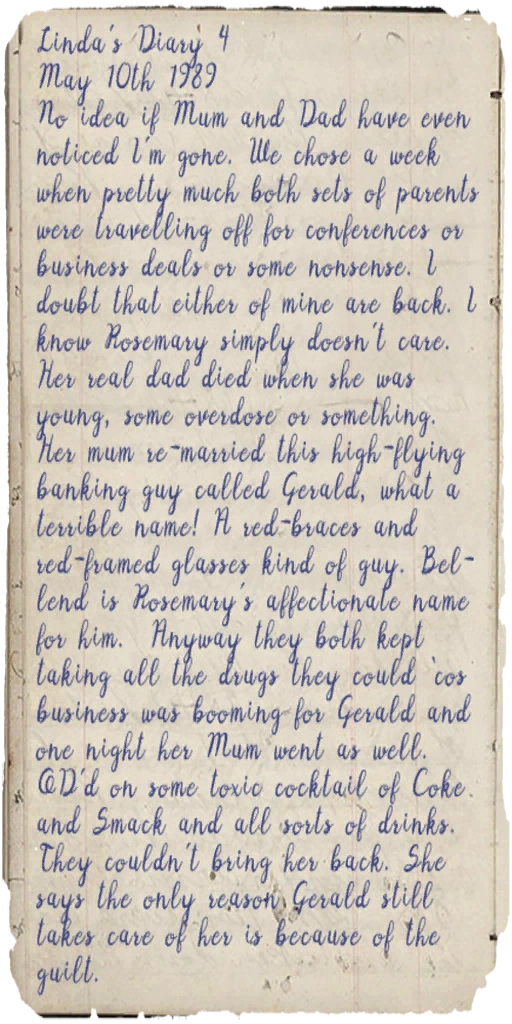 Linda's Diary 4
May 10th 1989
No idea if Mum and Dad have even
noticed I'm gone. We chose a week
when pretty much both sets of parents
were travelling off for conferences or
business deals or some nonsense. I
doubt that either of mine are back. I
know Rosemary simply doesn't care.
Her real dad died when she was
young, some overdose or something.
Her mum re-married this high-flying
banking guy called Gerald, what a
terrible name! A red-braces and
red-framed glasses kind of guy. Bel-
lend is Rosemary's affectionate name
for him. Anyway they both kept
taking all the drugs they could 'cos
business was booming for Gerald and
one night her Mum went as well.
OD'd on some toxic cocktail of Coke
and Smack and all sorts of drinks.
They couldn't bring her back. She
says the only reason Gerald still
takes care of her is because of the
guilt.